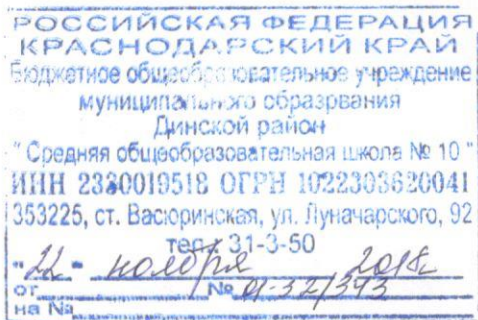 РОССИЙСКАЯ ФЕДЕРАЦИЯ
КРАСНОДАРСКИЙ КРАЙ
Бюджетное общеобразовательное учреждение
муниципального образования
Динской район
" Средняя общеобразовательная школа № 10 "
ИНН 2330019518 ОГРН 1022303620041
353225, ст. Васюринская, ул. Луначарского, 92
тел. 31-3-50
"22" ноября 2018г
от № 01-32/393
на №